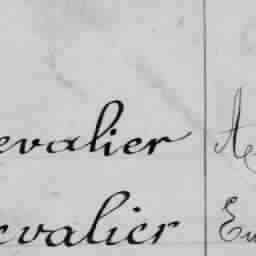 evalier A
evalier Eu